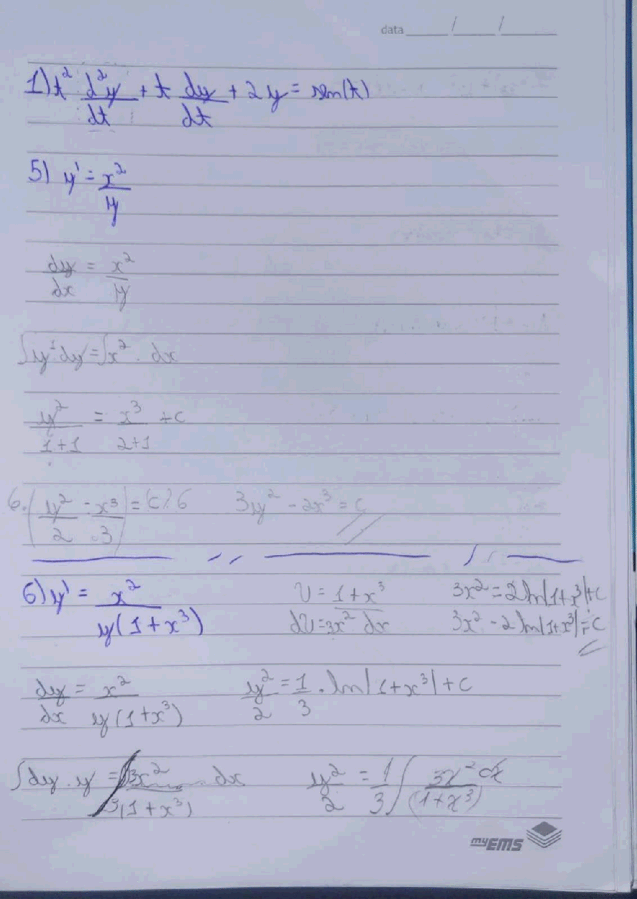 data / /
1) t² d²y/dt + t dy/dt + 2y = sen(t)
5) y' = x²/y
dy/dx = x²/y
∫y¹dy = ∫x² · dx
y²/1+1 = x³/2+1 + c
6·(y²/2 - x³/3) = (c)·6 3y² - 2x³ = c
6) y' = x²/y(1+x³)
U = 1+x³
dU = 3x² dx
3x² = 2 ln|1+x³| + c
3x² - 2 ln|1+x³| = c
dy/dx = x²/y(1+x³) y²/2 = 1/3 · ln|1+x³| + c
∫dy·y = ∫3x²/3(1+x³) dx y²/2 = 1/3 ∫ 3x² dx/(1+x³)
myEMS